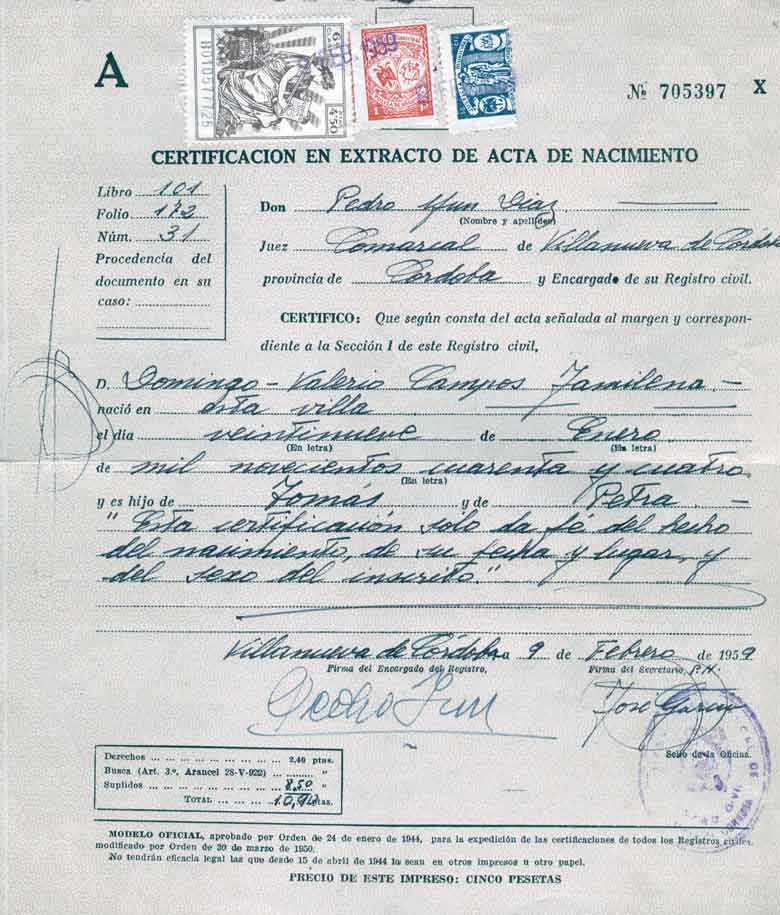 4'50
FEB. 1959
1
A
Nº 705397 X
CERTIFICACION EN EXTRACTO DE ACTA DE NACIMIENTO
Libro 101
Folio 172
Núm. 31
Procedencia del
documento en su
caso:
Don Pedro Yun Diaz
(Nombre y apellidos)
Juez Comarcal de Villanueva de Córdoba
provincia de Cordoba y Encargado de su Registro civil.
CERTIFICO: Que según consta del acta señalada al margen y correspon-
diente a la Sección I de este Registro civil,
D. Domingo-Valerio Campos Jamilena
nació en esta villa
el día veintinueve de Enero
(En letra) (En letra)
de mil novecientos cuarenta y cuatro
(En letra)
y es hijo de Tomás y de Petra
"Esta certificación sólo da fé del hecho
del nacimiento, de su fecha y lugar, y
del sexo del inscrito."
Villanueva de Córdoba a 9 de Febrero de 1959
Firma del Encargado del Registro, Firma del Secretario, P.H.
Pedro Yun José García
Sello de la Oficina.
Derechos 2,40 ptas.
Busca (Art. 3.º, Arancel 28-V-922) "
Suplidos 8,50 "
TOTAL 10,90 ptas.
MODELO OFICIAL, aprobado por Orden de 24 de enero de 1944, para la expedición de las certificaciones de todos los Registros civiles,
modificado por Orden de 20 de marzo de 1950.
No tendrán eficacia legal las que desde 15 de abril de 1944 lo sean en otros impresos u otro papel.
PRECIO DE ESTE IMPRESO: CINCO PESETAS